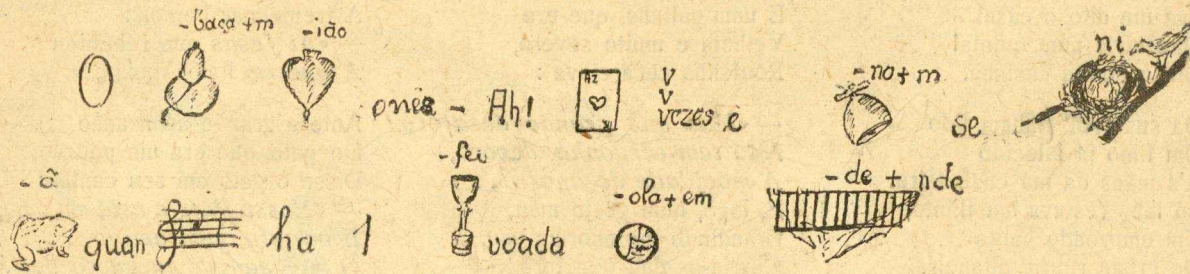 -baça+m -ião ones - Ah! Az V V vezes e -no+m se ni
-ã quan ha 1 -fei voada -ola+em -de + nde